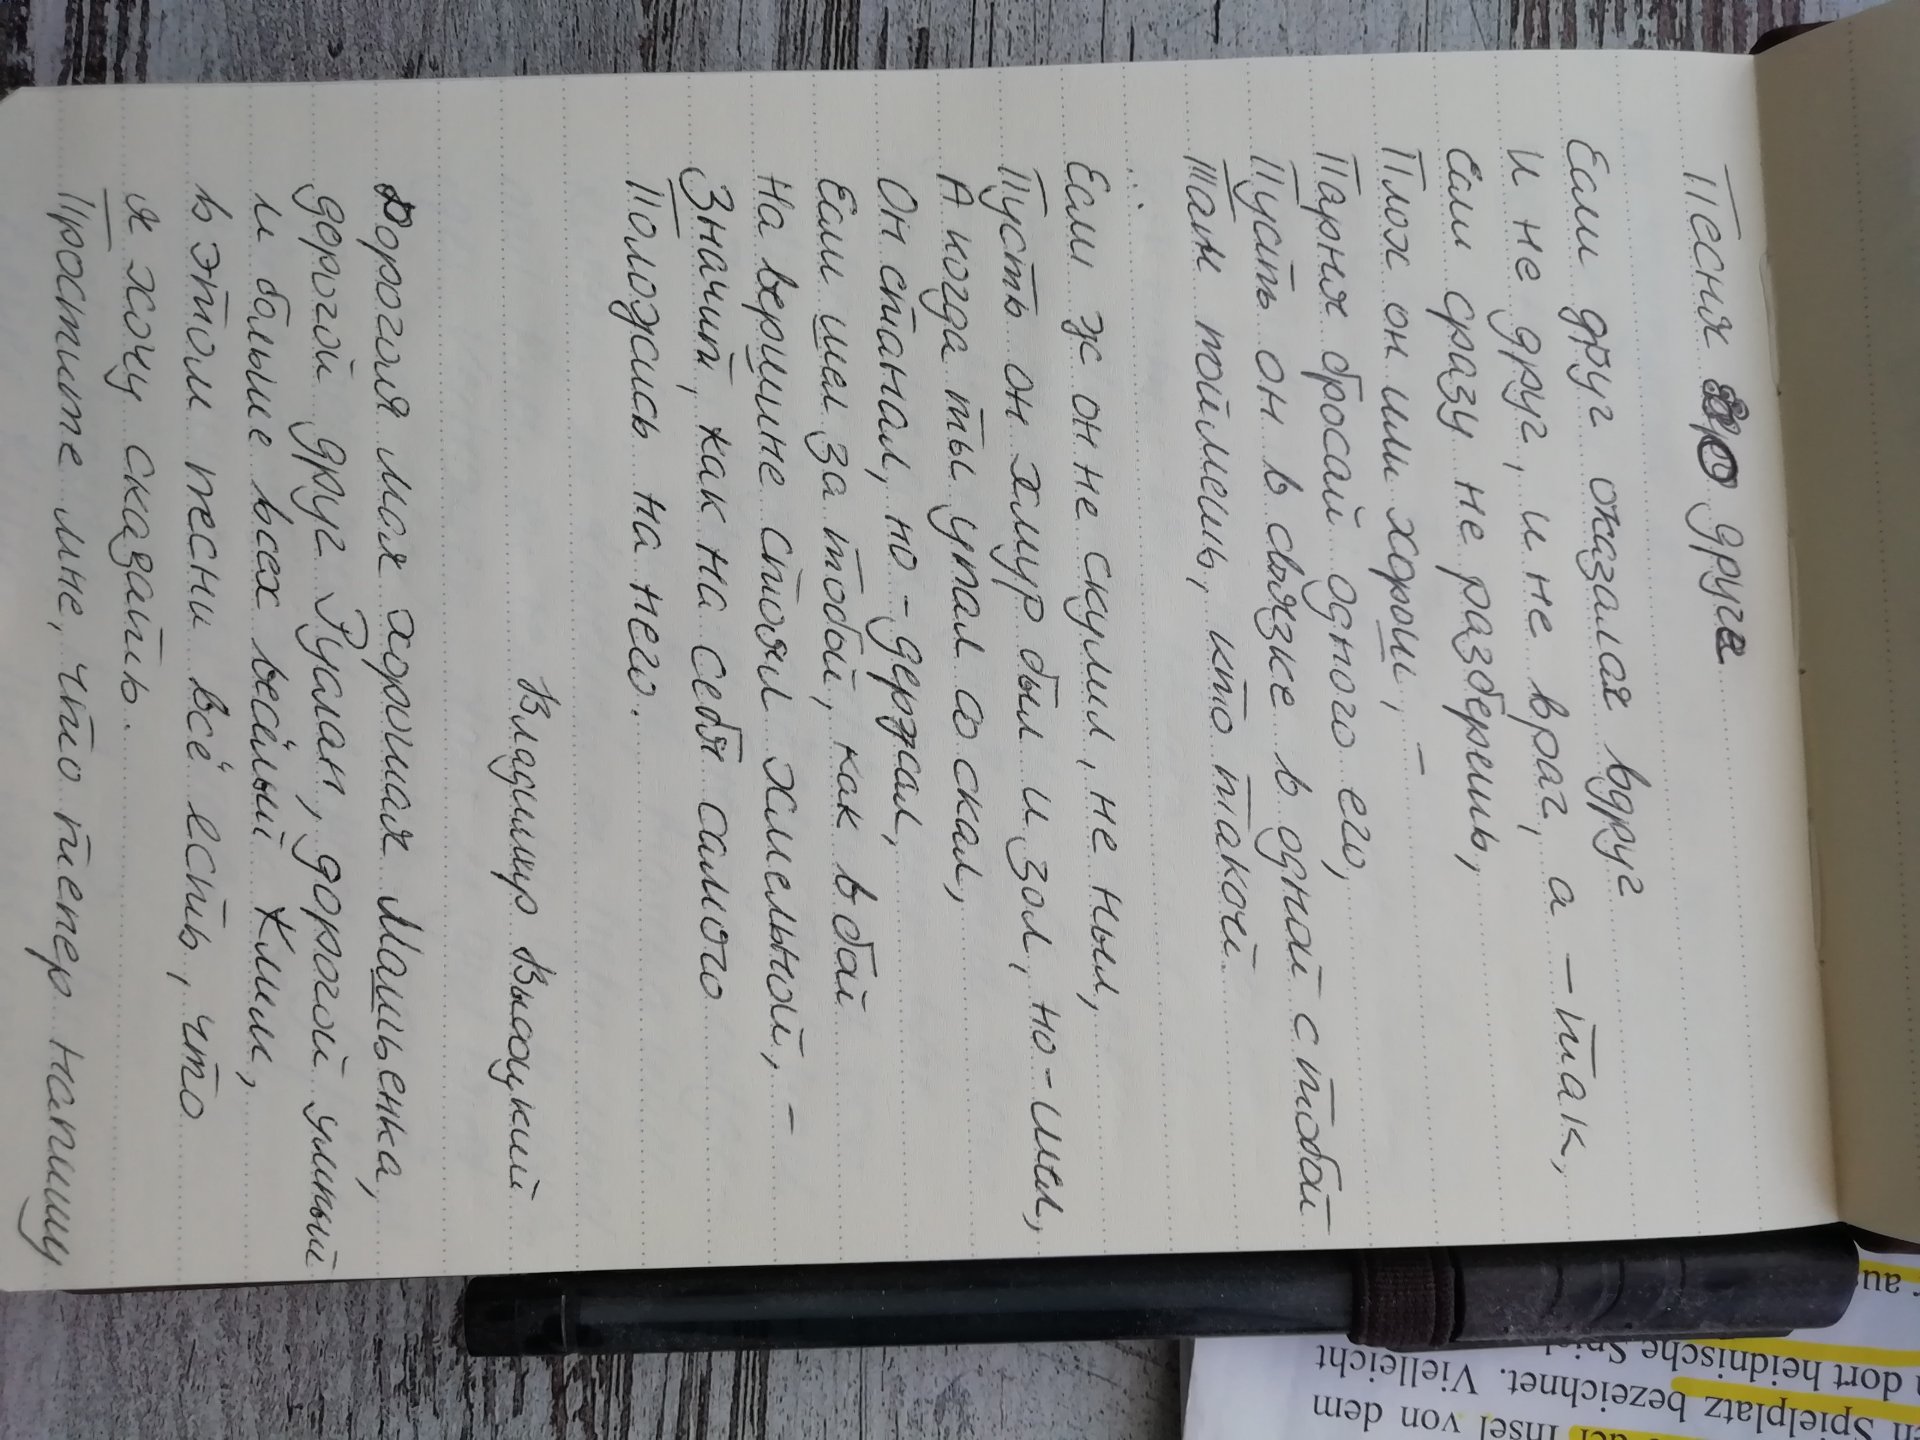 Песня о друге
Если друг оказался вдруг
И не друг, и не враг, а – так,
Если сразу не разберёшь,
Плох он или хорош, –
Парня бросай одного его,
Пусть он в связке в одной с тобой
Там поймёшь, кто такой.
...
Если ж он не скулил, не ныл,
Пусть он хмур был и зол, но – шёл,
А когда ты упал со скал,
Он стонал, но – держал,
Если шёл за тобой, как в бой
На вершине стоял хмельной, –
Значит, как на себя самого
Положись на него.
Владимир Высоцкий
Дорогая моя хорошая Машенька,
дорогой друг Руслан, дорогой умный
и больше всех весёлый Клим,
в этом песни всё есть, что
я хочу сказать.
Простите мне, что тепер напишу
au
dort heidnische Spiel
Spielplatz bezeichnet. Vielleicht
Insel von dem